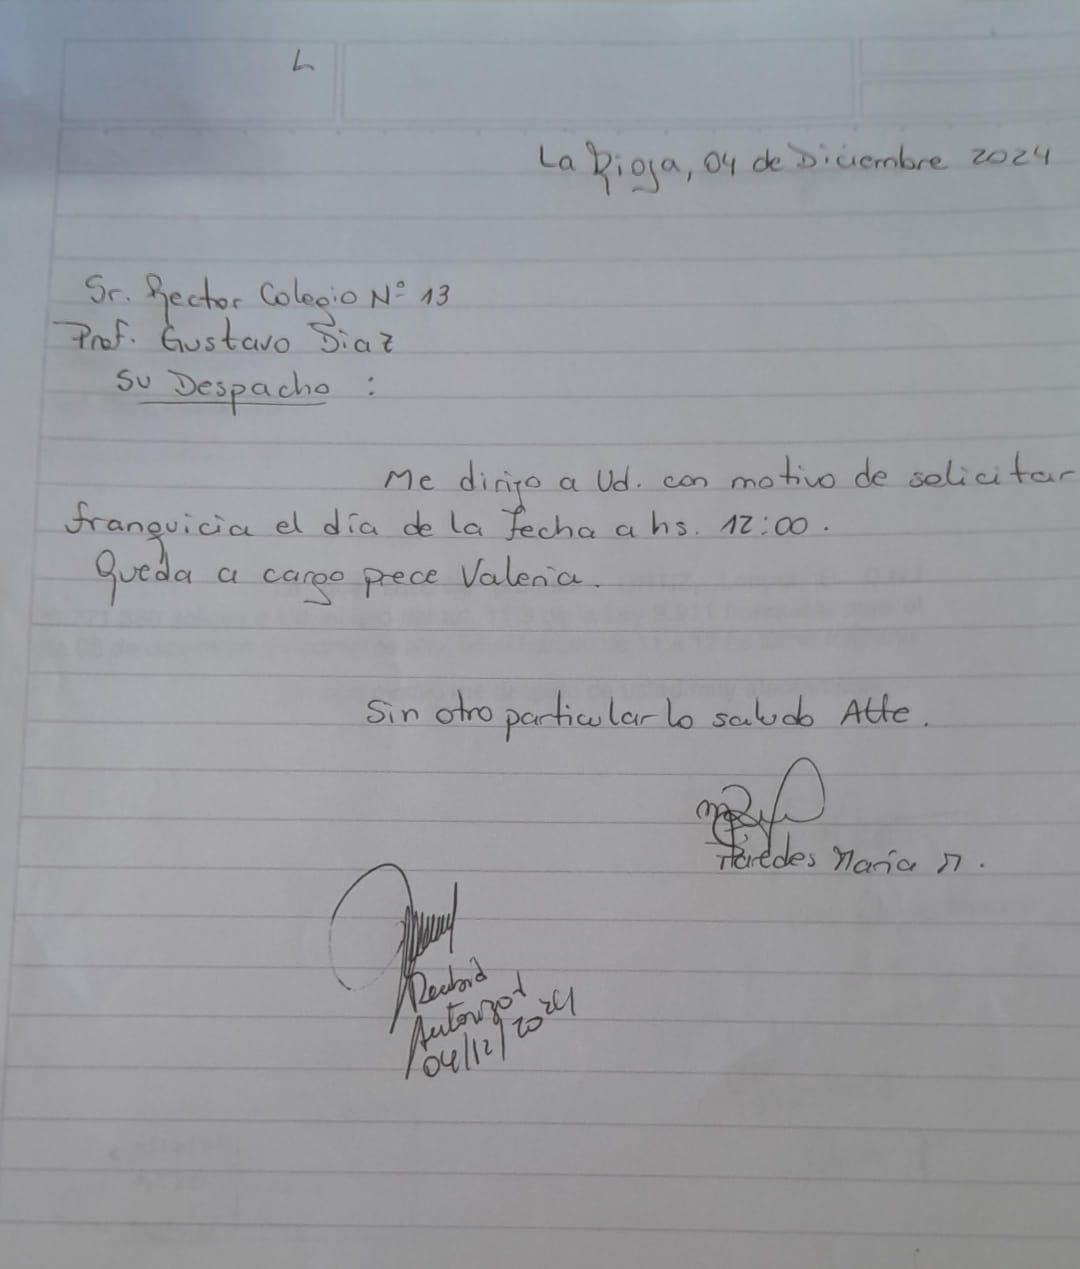 La Rioja, 04 de Diciembre 2024
Sr. Rector Colegio Nº 13
Prof. Gustavo Diaz
Su Despacho :
Me dirijo a Ud. con motivo de solicitar
franquicia el día de la fecha a hs. 12:00.
Queda a cargo prece Valeria.
Sin otro particular lo saludo Atte.
Paredes María N.
Recibid
Autorizod
04/12/2024